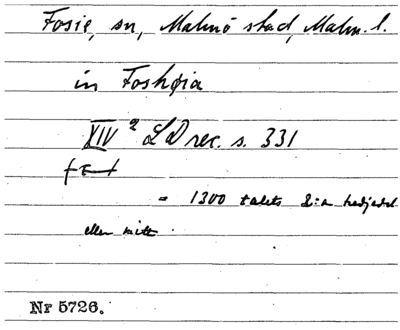 Fosie, sn, Malmö stad, Malm. l.
in Foshøia
XIV 2 LD rec. s. 331
= 1300 talets 2:a tredjedel
eller mitt.
Nr 5726.